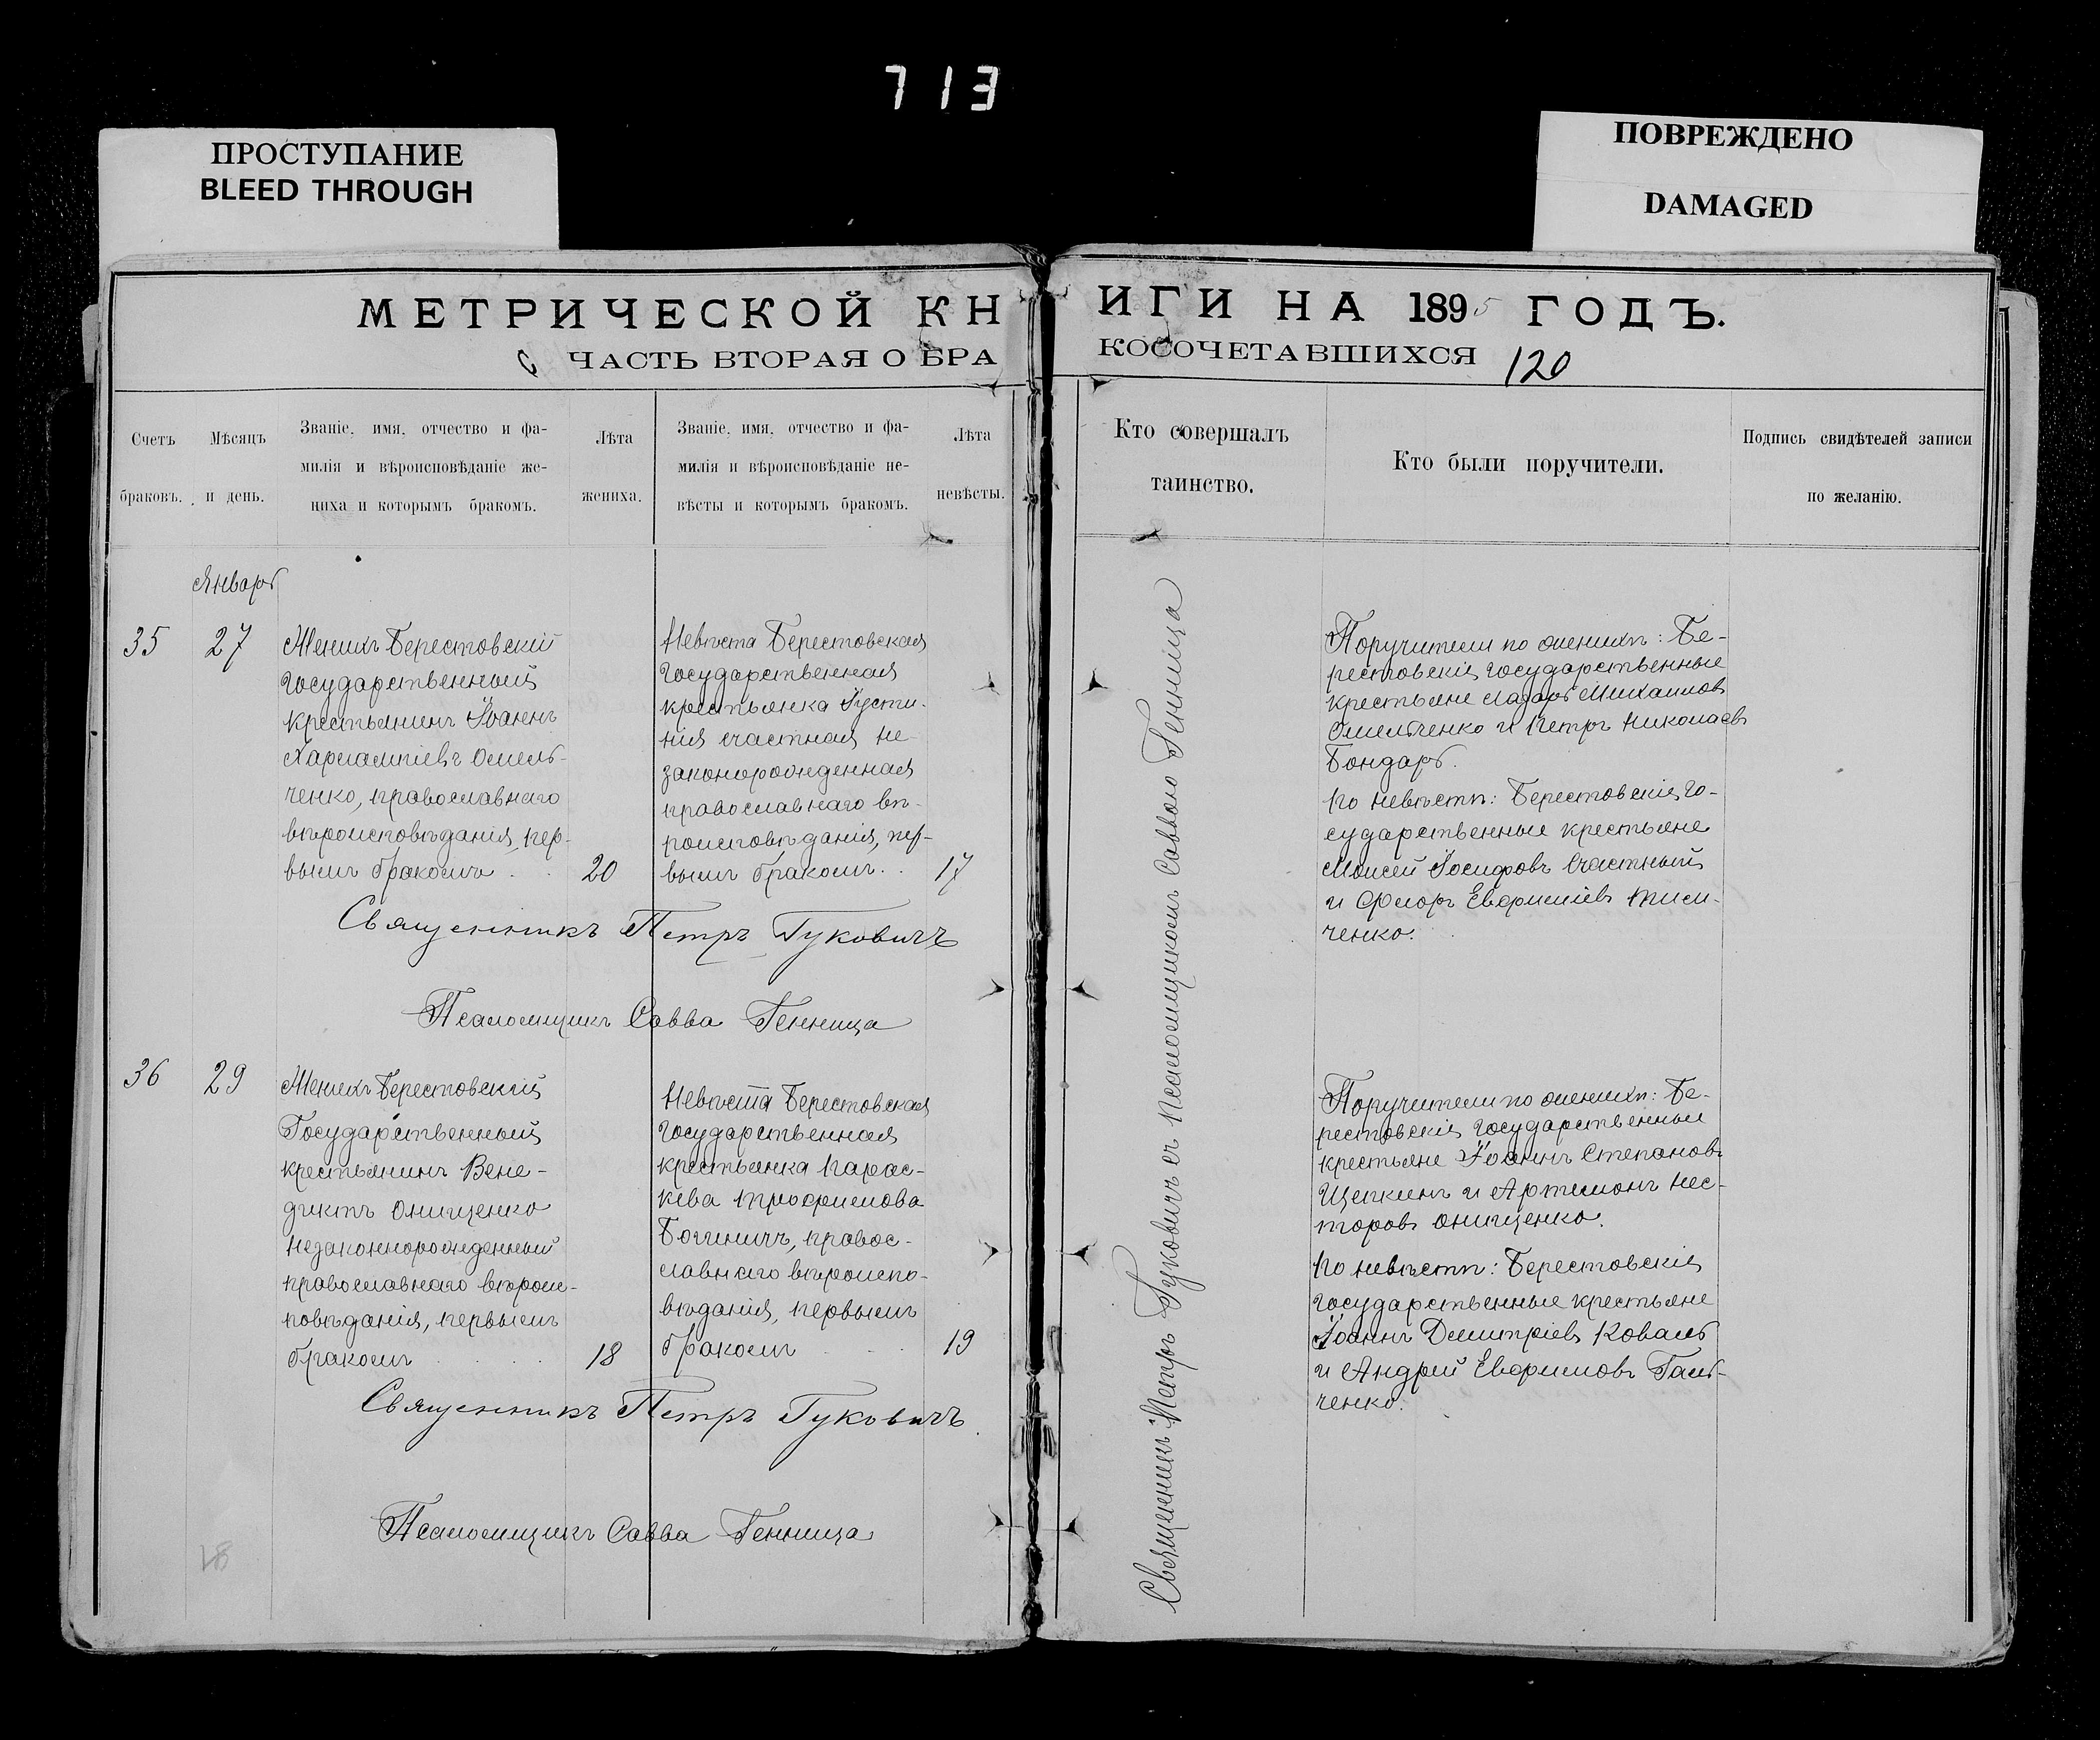 713
ПРОСТУПАНИЕ
BLEED THROUGH
ПОВРЕЖДЕНО
DAMAGED
МЕТРИЧЕСКОЙ КНИГИ НА 1895 ГОДЪ.
ЧАСТЬ ВТОРАЯ О БРАКОСОЧЕТАВШИХСЯ 120
Счетъ
браковъ.
Мѣсяцъ
и день.
Званіе, имя, отчество и фа-
милія и вѣроисповѣданіе же-
ниха и которымъ бракомъ.
Лѣта
жениха.
Званіе, имя, отчество и фа-
милія и вѣроисповѣданіе не-
вѣсты и которымъ бракомъ.
Лѣта
невѣсты.
Кто совершалъ
таинство.
Кто были поручители.
Подпись свидѣтелей записи
по желанію.
Январь
35
27
Женихъ Берестовскій
государственный
крестьянинъ Іоаннъ
Харлампіевъ Омель-
ченко, православнаго
вѣроисповѣданія, пер-
вымъ бракомъ . .
20
Невѣста Берестовская
государственная
крестьянка Іусти-
нія Счастная не-
законорожденная
православнаго вѣ-
роисповѣданія, пер-
вымъ бракомъ . .
17
Священникъ Петръ Гуковичъ
Псаломщикъ Савва Генница
Священникъ Петръ Гуковичъ съ Псаломщикомъ Саввою Генница
Поручители по женихѣ: Бе-
рестовскія государственные
крестьяне Лазарь Михаиловъ
Омельченко и Петръ Николаевъ
Бондарь.
По невѣстѣ: Берестовскія го-
сударственные крестьяне
Моисей Іосифовъ Счастный
и Флоръ Евфиміевъ Тим-
ченко.
36
29
Женихъ Берестовскій
Государственный
крестьянинъ Вене-
диктъ Онищенко
незаконнорожденный
православнаго вѣроис-
повѣданія, первымъ
бракомъ . . . .
18
Невѣста Берестовская
государственная
крестьянка Парас-
кева Трофимова
Богиничъ, правос-
лавнаго вѣроиспо-
вѣданія, первымъ
бракомъ . . .
19
Священникъ Петръ Гуковичъ
Псаломщикъ Савва Генница
Поручители по женихѣ: Бе-
рестовскія государственные
крестьяне Іоаннъ Степановъ
Щепкинъ и Артемонъ Нес-
торовъ Онищенко.
По невѣстѣ: Берестовскія
государственные крестьяне
Іоаннъ Димитріевъ Коваль
и Андрей Евфимовъ Галь-
ченко.